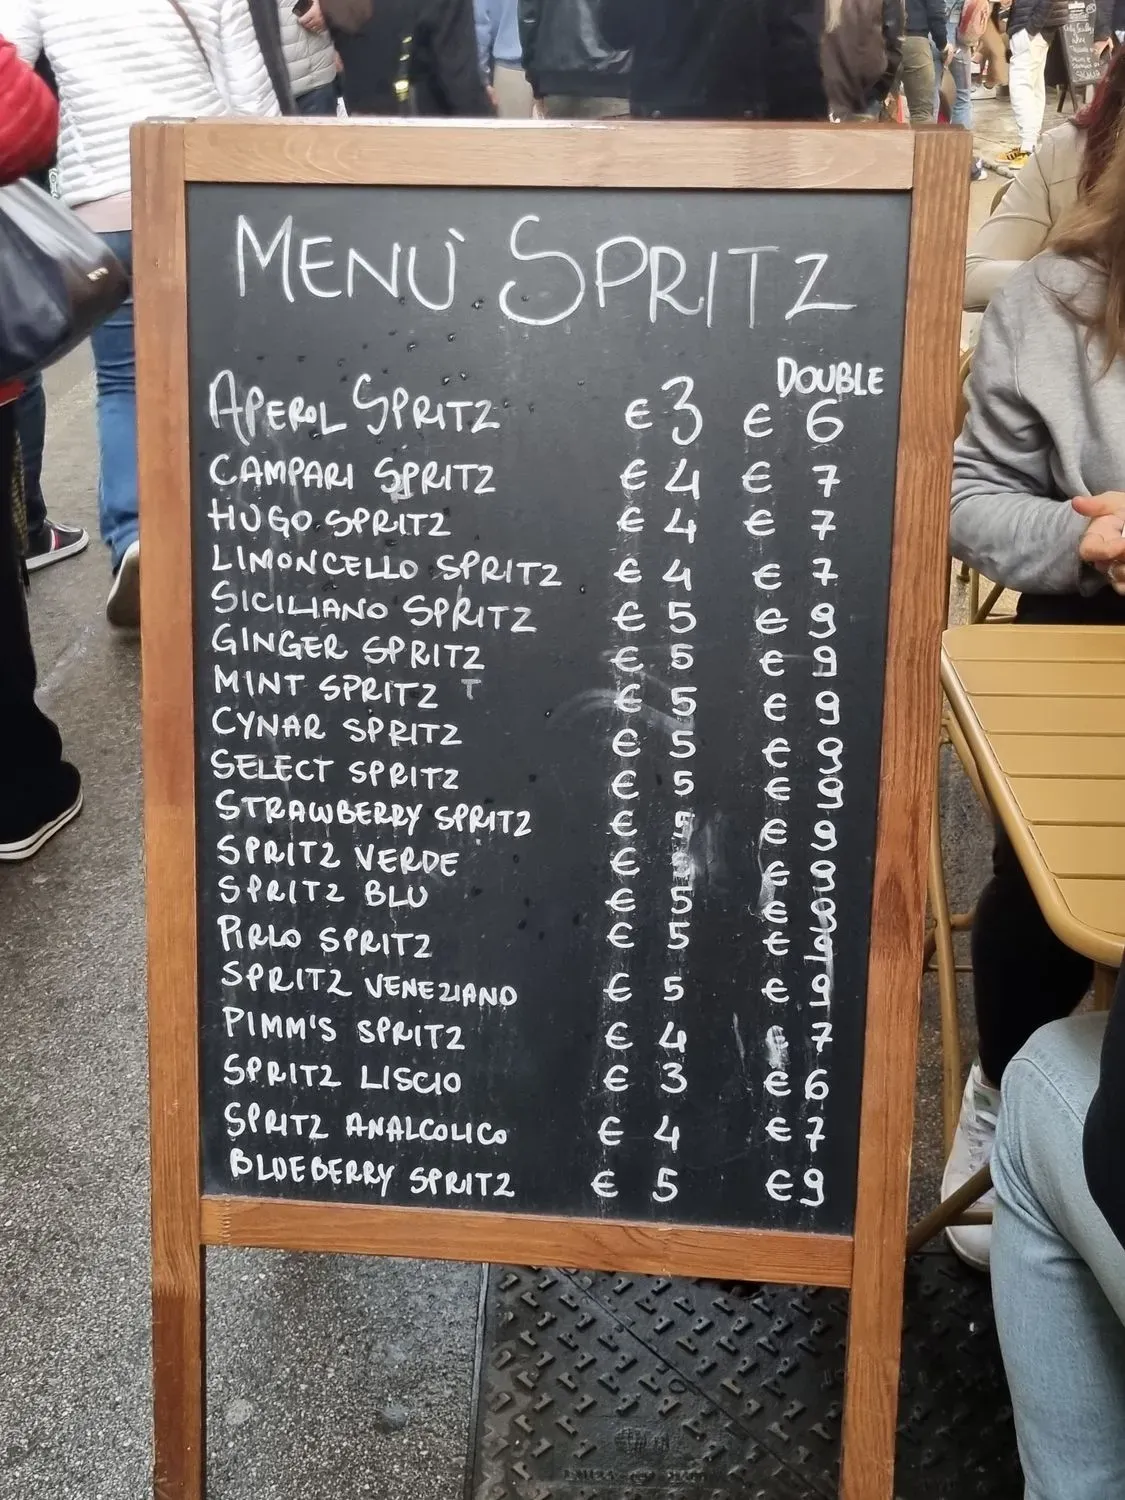 MENÙ SPRITZ
DOUBLE
APEROL SPRITZ € 3 € 6
CAMPARI SPRITZ € 4 € 7
HUGO SPRITZ € 4 € 7
LIMONCELLO SPRITZ € 4 € 7
SICILIANO SPRITZ € 5 € 9
GINGER SPRITZ € 5 € 9
MINT SPRITZ T € 5 € 9
CYNAR SPRITZ € 5 € 9
SELECT SPRITZ € 5 € 9
STRAWBERRY SPRITZ € 5 € 9
SPRITZ VERDE € 5 € 9
SPRITZ BLU € 5 € 9
PIRLO SPRITZ € 5 € 9
SPRITZ VENEZIANO € 5 € 9
PIMM'S SPRITZ € 4 € 7
SPRITZ LISCIO € 3 € 6
SPRITZ ANALCOLICO € 4 € 7
BLUEBERRY SPRITZ € 5 € 9